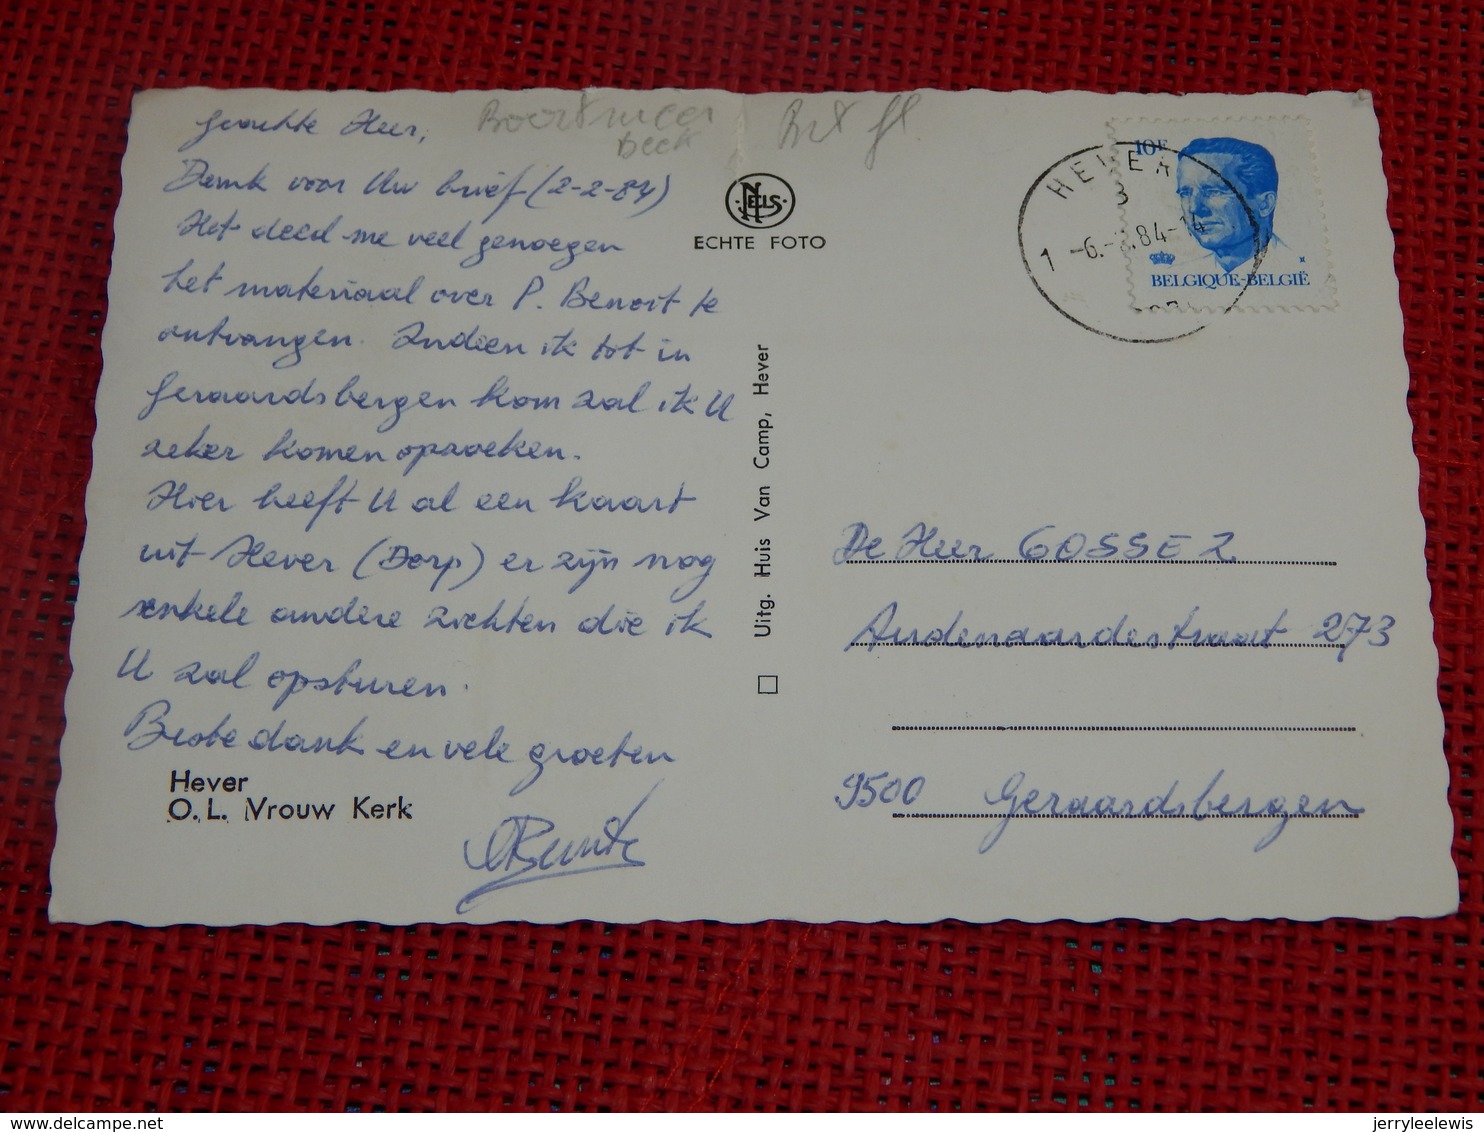 Geachte Heer,
Dank voor Uw brief (2-2-84)
Het deed me veel genoegen
het materiaal over P. Benoit te
ontvangen. Indien ik tot in
Geraardsbergen kom zal ik U
zeker komen opzoeken.
Hier heeft U al een kaart
uit Hever (Dorp) er zijn nog
enkele andere zichten die ik
U zal opsturen.
Beste dank en vele groeten
Hever
O. L. Vrouw Kerk
Boortmeer
beek
NELS
ECHTE FOTO
Uitg. Huis Van Camp, Hever
10F
BELGIQUE-BELGIË
HEVER
3
1 -6.- .84-14
De Heer GOSSEZ
Audenaardestraat 273
9500 Geraardsbergen
delcampe.net
jerryleelewis